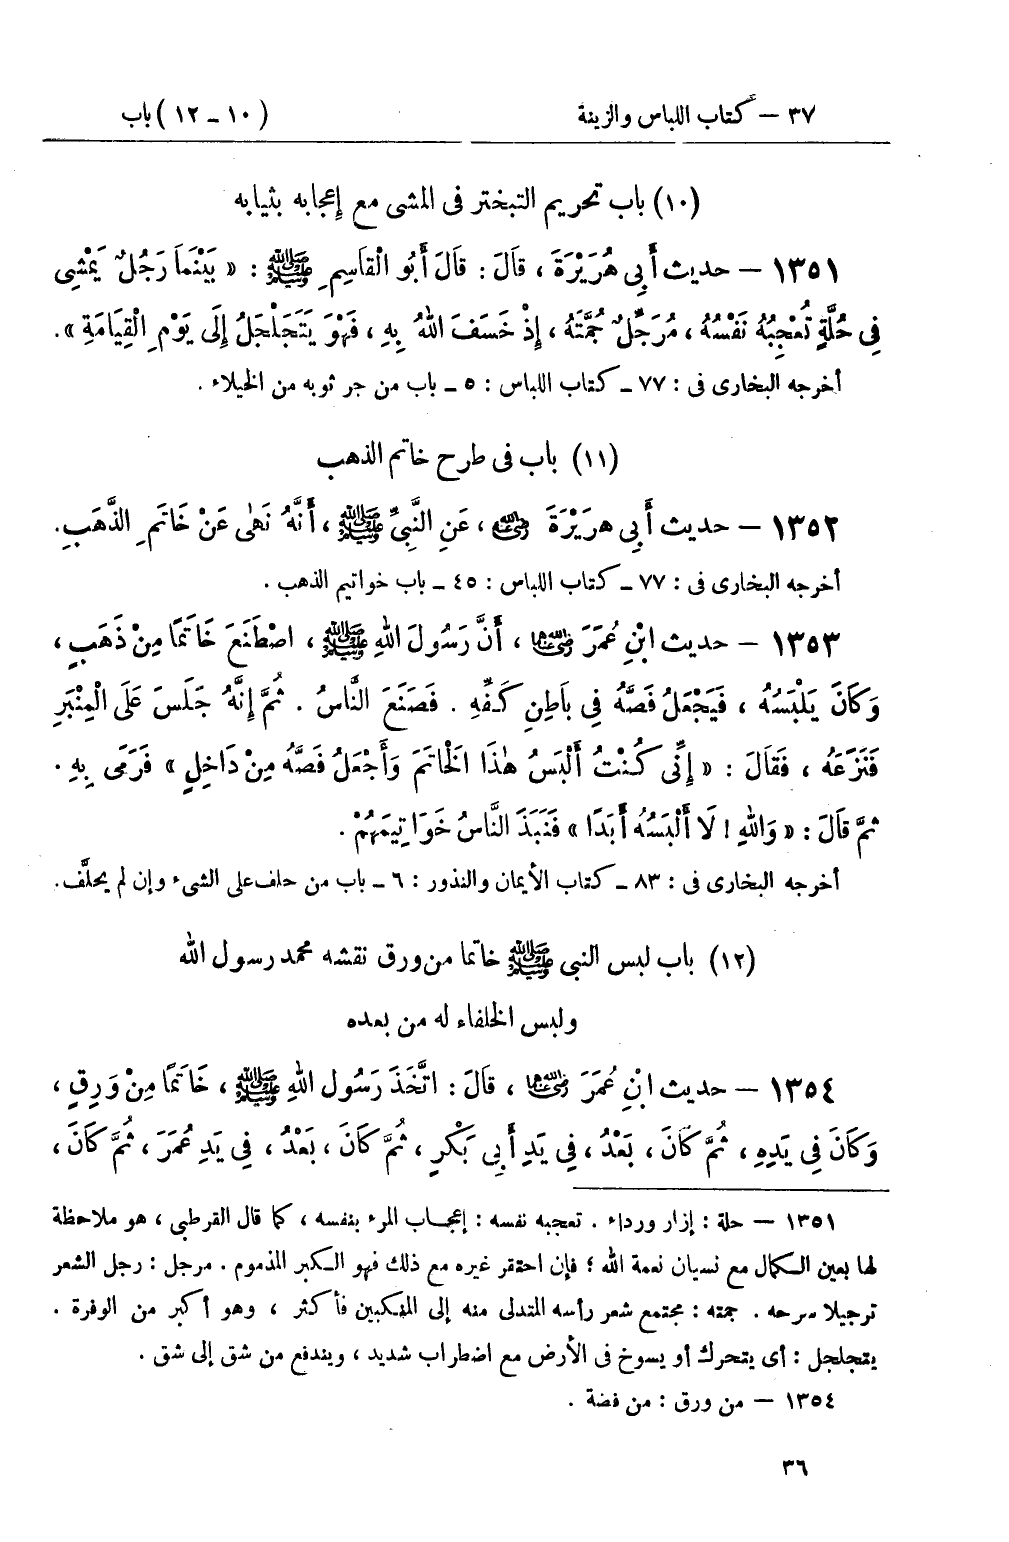 ٣٧ – كتاب اللباس والزينة (١٠ – ١٢) باب
(١٠) باب تحريم التبختر فى المشى مع إعجابه بثيابه
١٣٥١ – حديث أَبِى هُرَيْرَةَ ، قَالَ : قَالَ أَبُو الْقَاسِمِ ﷺ : « بَيْنَمَا رَجُلٌ يَمْشِى
فِى حُلَّةٍ تُعْجِبُهُ نَفْسُهُ ، مُرَجِّلٌ جُمَّتَهُ ، إِذْ خَسَفَ اللهُ بِهِ ، فَهْوَ يَتَجَلْجَلُ إِلَى يَوْمِ الْقِيَامَةِ » .
أخرجه البخارى فى : ٧٧ – كتاب اللباس : ٥ – باب من جر ثوبه من الخيلاء .
(١١) باب فى طرح خاتم الذهب
١٣٥٢ – حديث أَبِى هريْرَةَ رضي الله عنه ، عَنِ النَّبِىِّ ﷺ ، أَنَّهُ نَهٰى عَنْ خَاتَمِ الذَّهَبِ .
أخرجه البخارى فى : ٧٧ – كتاب اللباس : ٤٥ – باب خواتيم الذهب .
١٣٥٣ – حديث ابْنِ عُمَرَ رضي الله عنهما ، أَنَّ رَسُولَ اللهِ ﷺ ، اصْطَنَعَ خَاتَمًا مِنْ ذَهَبٍ ،
وَكَانَ يَلْبَسُهُ ، فَيَجْعَلُ فَصَّهُ فِى بَاطِنِ كَفِّهِ . فَصَنَعَ النَّاسُ . ثُمَّ إِنَّهُ جَلَسَ عَلَى الْمِنْبَرِ
فَنَزَعَهُ ، فَقَالَ : « إِنِّى كُنْتُ أَلْبَسُ هٰذَا الْخَاتَمَ وَأَجْعَلُ فَصَّهُ مِنْ دَاخِلٍ » فَرَمَى بِهِ .
ثمَّ قَالَ : « وَاللهِ ! لَا أَلْبَسُهُ أَبَدًا » فَنَبَذَ النَّاسُ خَوَاتِيمَهُمْ .
أخرجه البخارى فى : ٨٣ – كتاب الأيمان والنذور : ٦ – باب من حلف على الشىء وإن لم يحلَّف .
(١٢) باب لبس النبى ﷺ خاتما من ورق نقشه محمد رسول الله
ولبس الخلفاء له من بعده
١٣٥٤ – حديث ابْنِ عُمَرَ رضي الله عنهما ، قَالَ : اتَّخَذَ رَسُول اللهِ ﷺ ، خَاتَمًا مِنْ وَرِقٍ ،
وَكَانَ فِى يَدِهِ ، ثُمَّ كَانَ ، بَعْدُ ، فِى يَدِ أَبِى بَكْرٍ ، ثُمَّ كَانَ ، بَعْدُ ، فِى يَدِ عُمَرَ ، ثُمَّ كَانَ ،
١٣٥١ – حلة : إزار ورداء . تعجبه نفسه : إعجاب المرء بنفسه ، كما قال القرطبى ، هو ملاحظة
لها بعين الكمال مع نسيان نعمة الله ؛ فإن احتقر غيره مع ذلك فهو الكبر المذموم . مرجل : رجل الشعر
ترجيلا سرحه . جمته : مجتمع شعر رأسه المتدلى منه إلى المنكبين فأكثر ، وهو أكبر من الوفرة .
يتجلجل : أى يتحرك أو يسوخ فى الأرض مع اضطراب شديد ، ويندفع من شق إلى شق .
١٣٥٤ – من ورق : من فضة .
٣٦